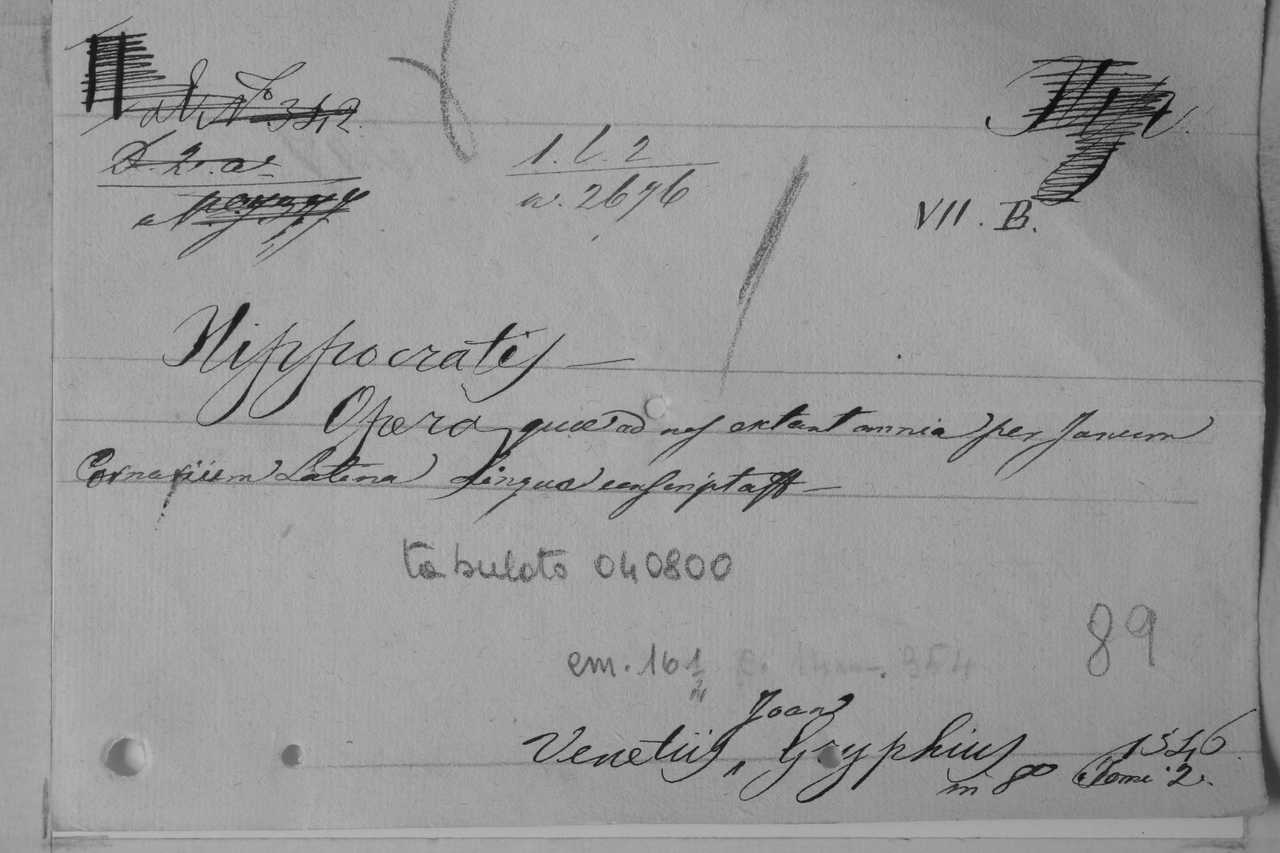 ad No. 342.
D. 2. a.
1. l. 2
a. 2676
VII. B.
Hippocratis —
Opera, quae ad nos extant omnia per Janum
Cornarium Latina Lingua conscripta —
tabulato 040800
89
em. 16 1/2
354
Joan
Venetiis, Gryphius 1546
in 8o Tomi 2.